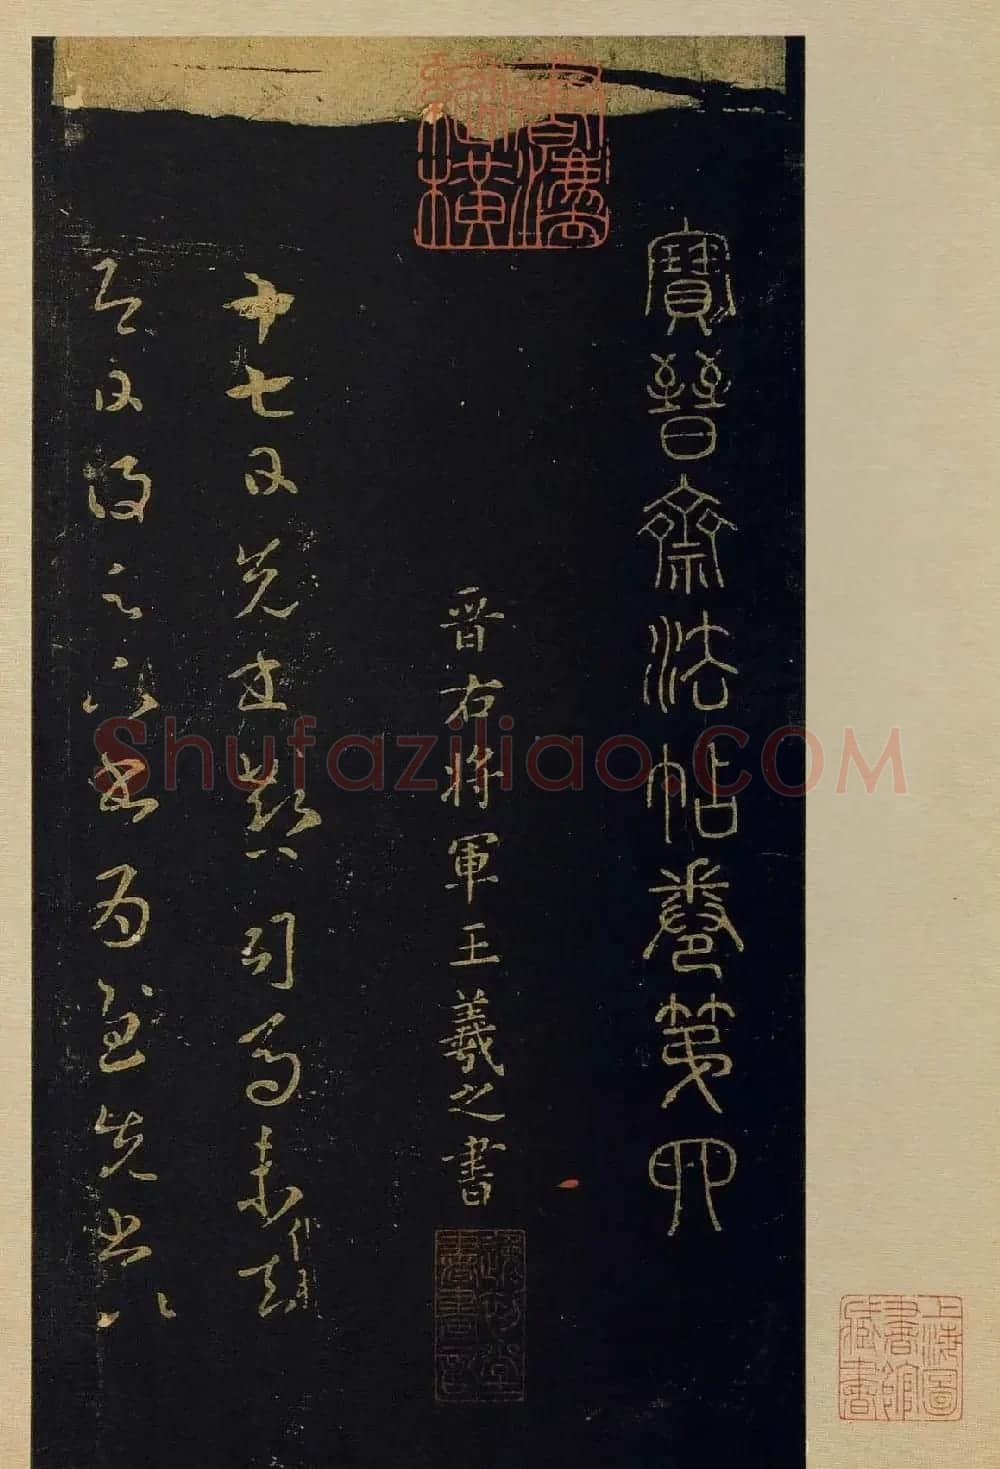 寶晉齋法帖卷第四
晉右將軍王羲之書
十七日先書郗司馬未去
即日得足下書為慰先書以
上海圖書館藏書
Shufaziliao.COM